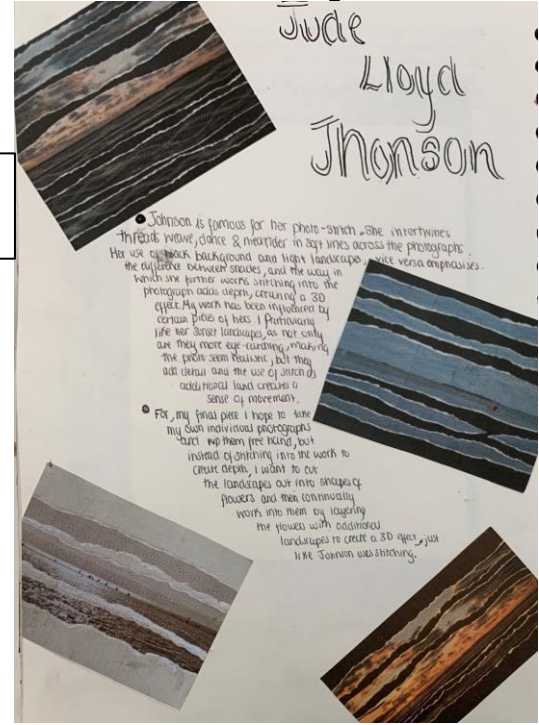 Jude
Lloyd
Jhonson
Johnson is famous for her photo-stitch. She intertwines
threads weave, dance & meander in soft lines across the photographs.
Her use of black background and light landscape, vice versa emphasises.
the difference between shades, and the way in
which she further works stitching into the
photograph adds depth, creating a 3D
effect. My work has been influenced by
certain pieces of hers. I particularly
like her sunset landscapes, as not only
are they more eye-catching, making
the photo seem realistic, but they
add detail and the use of stitch as
additional land creates a
sense of movement.
For, my final piece I hope to take
my own individual photographs
and rip them free hand, but
instead of stitching into the work to
create depth, I want to cut
the landscapes out into shapes of
flowers and then continually
work into them by layering
the flowers with additional
landscapes to create a 3D effect, just
like Johnson uses stitching.